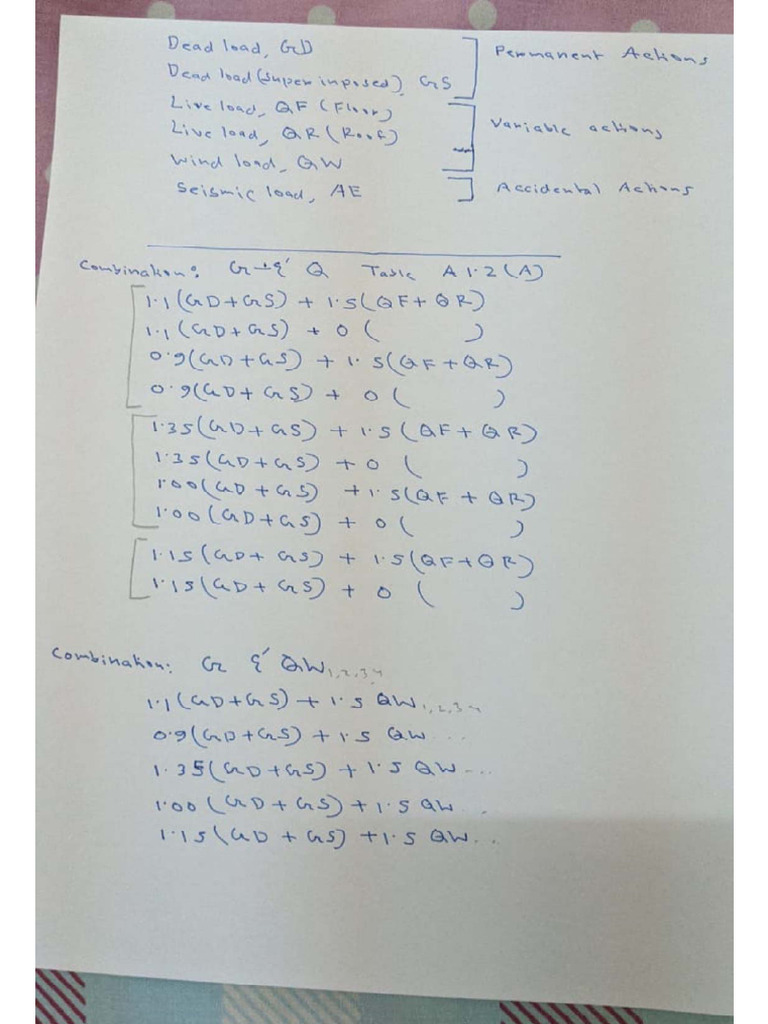 Dead load, GD
Dead load (super inposed), GS
Permanent Actions
Live load, QF (Floor)
Live load, QR (Roof)
Wind load, QW
Variable actions
Seismic load, AE
Accidental Actions
Combination: G & Q Table A1.2(A)
1.1(GD+GS) + 1.5(QF+QR)
1.1(GD+GS) + 0 ( )
0.9(GD+GS) + 1.5(QF+QR)
0.9(GD+GS) + 0 ( )
1.35(GD+GS) + 1.5(QF+QR)
1.35(GD+GS) + 0 ( )
1.00(GD+GS) + 1.5(QF+QR)
1.00(GD+GS) + 0 ( )
1.15(GD+GS) + 1.5(QF+QR)
1.15(GD+GS) + 0 ( )
Combination: G & QW1,2,3,4
1.1(GD+GS) + 1.5 QW1,2,3,4
0.9(GD+GS) + 1.5 QW...
1.35(GD+GS) + 1.5 QW...
1.00(GD+GS) + 1.5 QW...
1.15(GD+GS) + 1.5 QW...